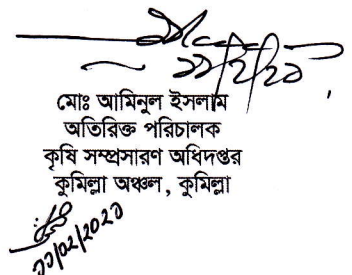 মোঃ আমিনুল ইসলাম
অতিরিক্ত পরিচালক
কৃষি সম্প্রসারণ অধিদপ্তর
কুমিল্লা অঞ্চল, কুমিল্লা